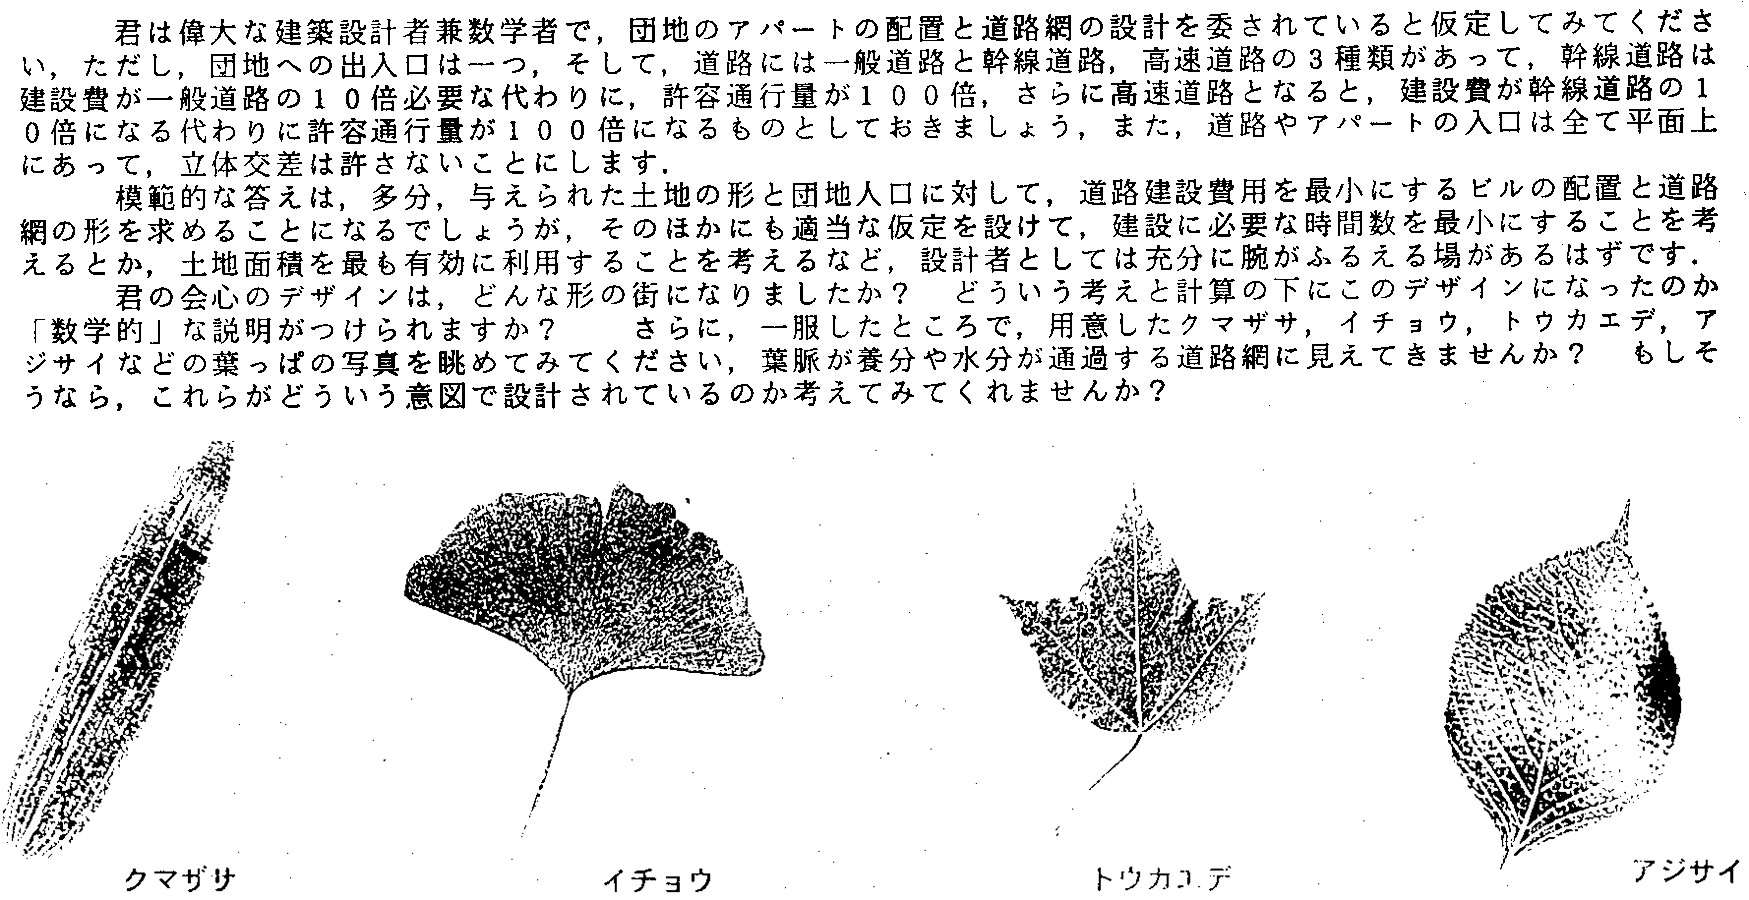 君は偉大な建築設計者兼数学者で，団地のアパートの配置と道路網の設計を委されていると仮定してみてくださ
い，ただし，団地への出入口は一つ，そして，道路には一般道路と幹線道路，高速道路の３種類があって，幹線道路は
建設費が一般道路の１０倍必要な代わりに，許容通行量が１００倍，さらに高速道路となると，建設費が幹線道路の１
０倍になる代わりに許容通行量が１００倍になるものとしておきましょう，また，道路やアパートの入口は全て平面上
にあって，立体交差は許さないことにします．
模範的な答えは，多分，与えられた土地の形と団地人口に対して，道路建設費用を最小にするビルの配置と道路
網の形を求めることになるでしょうが，そのほかにも適当な仮定を設けて，建設に必要な時間数を最小にすることを考
えるとか，土地面積を最も有効に利用することを考えるなど，設計者としては充分に腕がふるえる場があるはずです．
君の会心のデザインは，どんな形の街になりましたか？　どういう考えと計算の下にこのデザインになったのか
「数学的」な説明がつけられますか？　さらに，一服したところで，用意したクマザサ，イチョウ，トウカエデ，ア
ジサイなどの葉っぱの写真を眺めてみてください，葉脈が養分や水分が通過する道路網に見えてきませんか？　もしそ
うなら，これらがどういう意図で設計されているのか考えてみてくれませんか？
クマザサ
イチョウ
トウカエデ
アジサイ